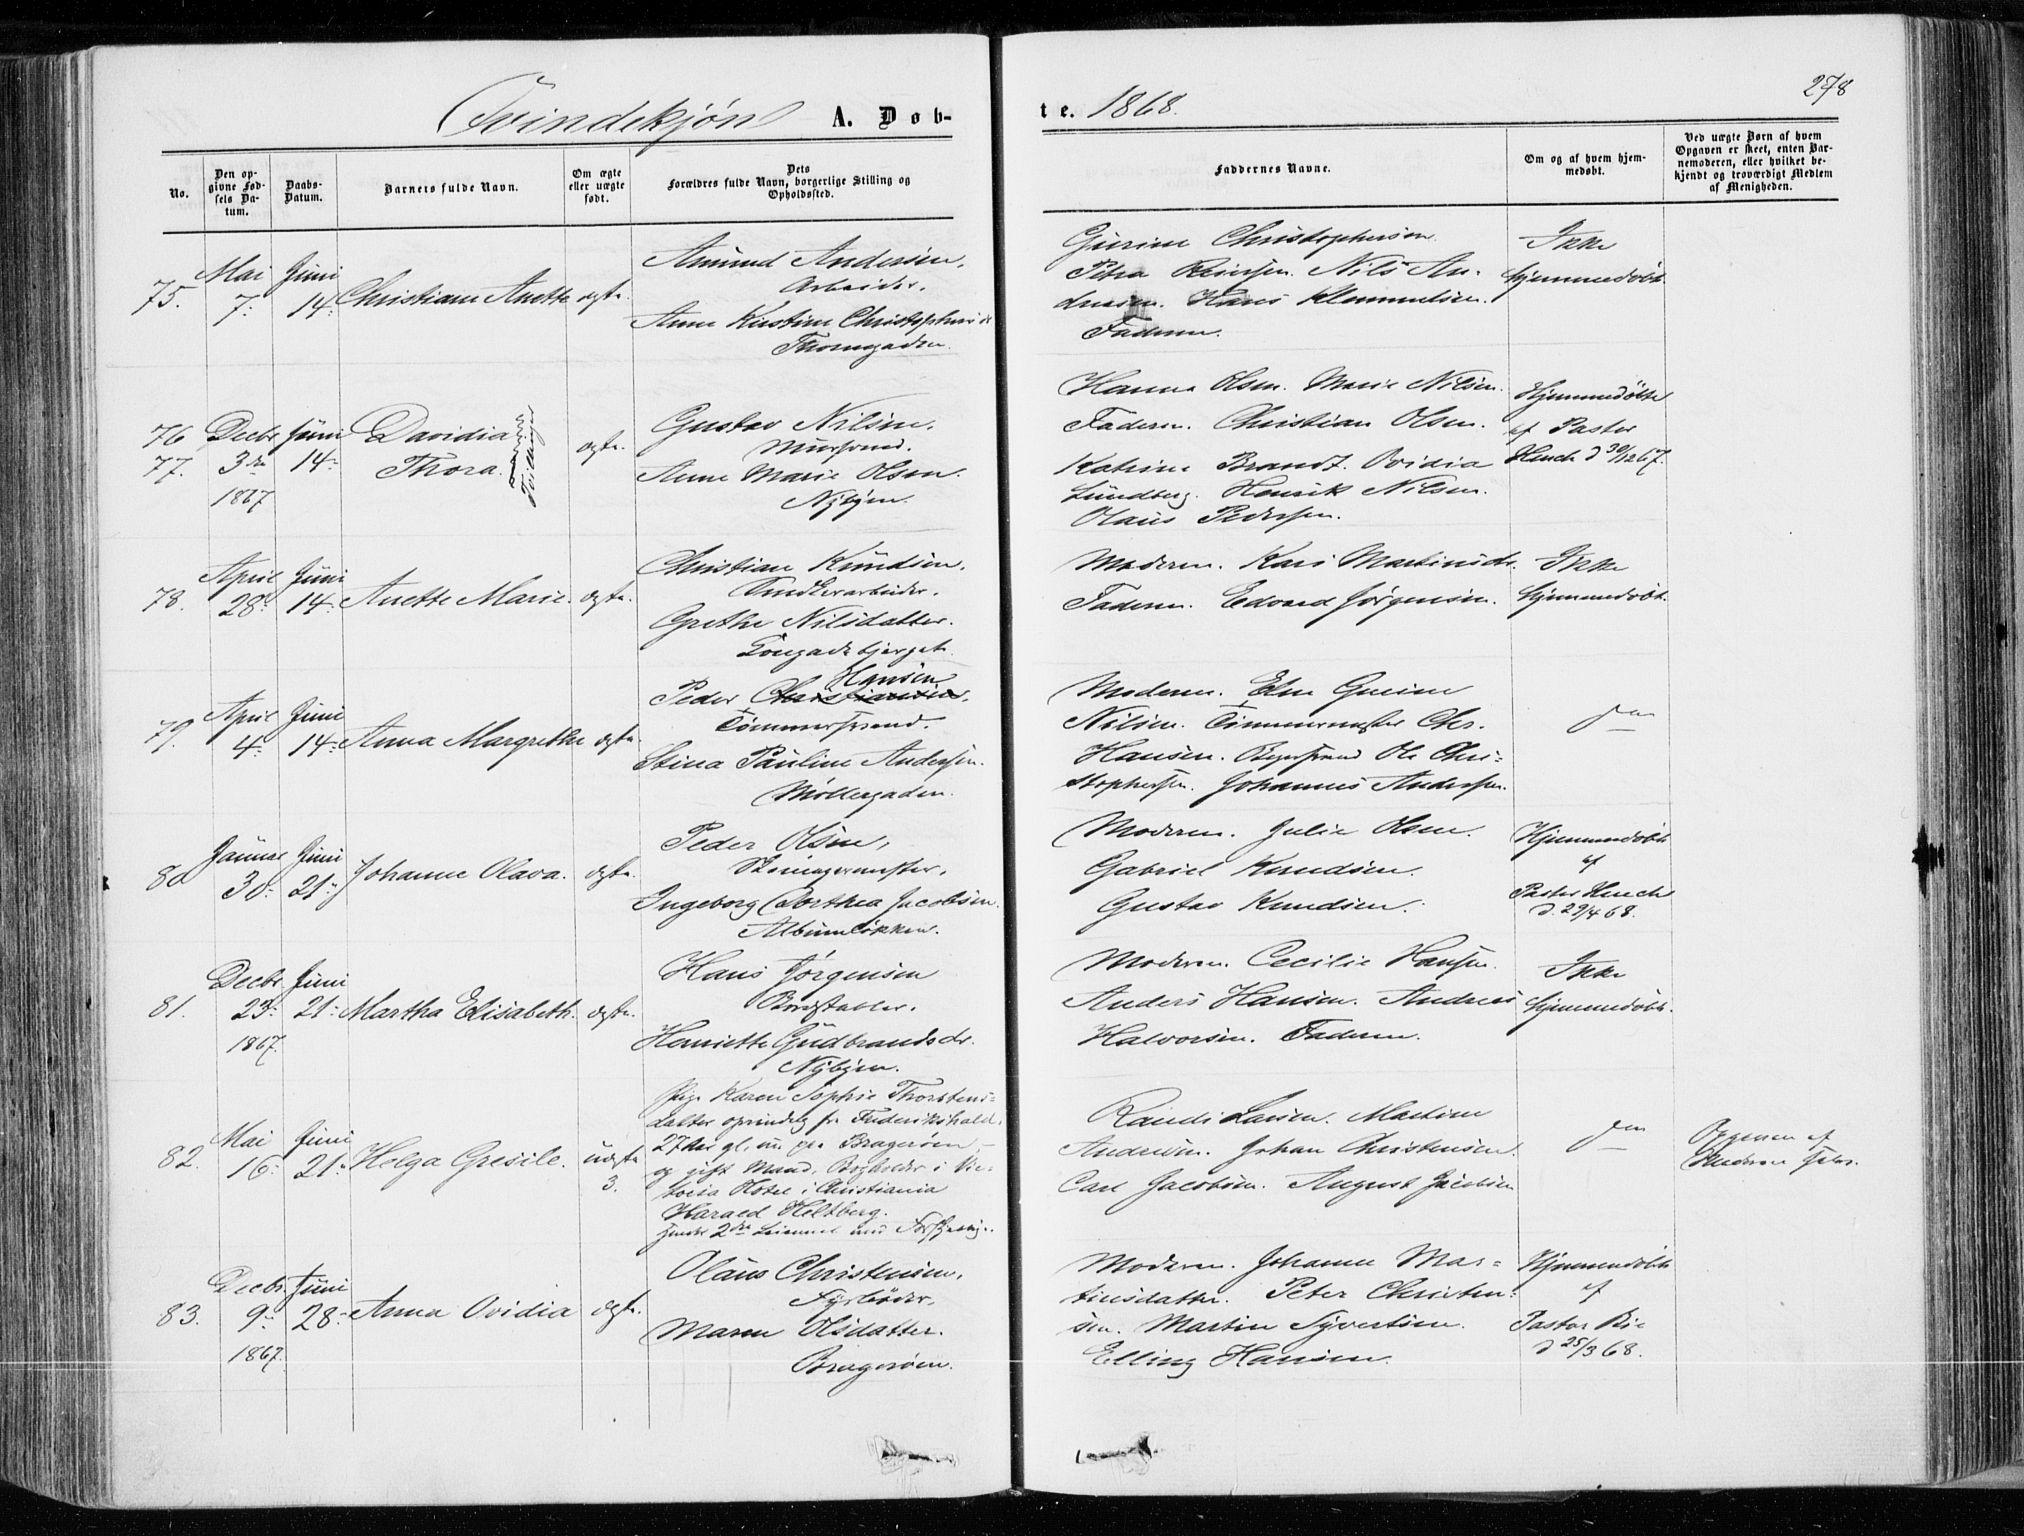 Qvindekjøn A. Døb-
No.
Den op-
givne Fød-
sels Da-
tum.
Daabs-
Datum.
Barnets fulde Navn.
Om ægte
eller uægte
født.
Dets
Forældres fulde Navn, borgerlige Stilling og
Opholdssted.
75.
Mai
7.
Juni
14
Christiane Anette
ægte.
Amund Andersen,
Arbeider.
Anne Kirstine Christophersd
Thornegaden.
76
77.
Decbr
3die
1867
Juni
14
Davidia
Thora.
Tvillinger
ægte.
Gustav Nilsen.
Muursvend.
Anne Marie Olsen.
Nybyen.
78.
April
28
Juni
14
Anette Marie.
ægte.
Christian Knudsen.
Grethe Nilsdatter.
79.
April
4
Juni
14
Anna Margrethe
ægte.
Hansen
Peder Christiansen.
Tømmersvend.
Stina Pauline Andersen.
Møllergaden.
80
Januar
30
Juni
21
Johanne Olava.
ægte.
Peder Olsen,
Ingeborg Dorthea Jacobsen.
Albumløkken.
81.
Decbr.
23
1867.
Juni
21
Martha Elisabeth.
ægte.
Hans Jørgensen
Bordstabler.
Henriette Gudbrandsdr.
Nybyen.
82.
Mai
16
Juni
21
Helga Gresile.
uægte
3.
Pige Karen Sophie Thorstens-
datter oprindelig fra Frederikshald.
27 Aar gl., nu paa Bragerøen
og gift Mand, Bogholder i Vic-
toria Hotel i Christiania
Harald Heltberg.
hendes 2det Leiermaal
83.
Decbr.
9
1867.
Juni
28
Anna Ovidia
ægte.
Olaus Christensen,
Fyrbøder,
Maren Olsdatter.
Bragerøen.
te. 1868.
278
Faddernes Navne.
Om og af hvem hjem-
medøbt.
Ved uægte Børn af hvem
Opgaven er skeet, enten Bar-
nemoderen, eller hvilket be-
kjendt og troværdigt Medlem
af Menigheden.
Gurine Christophersen.
Petra Reiersen. Nils An-
dresen. Hans Klemmetsen.
Faderen.
Ikke
hjemmedøbt.
Hanna Olsen. Marie Nilsen.
Faderen. Christian Olsen.
Katrine Brandt. Ovidia
Lundberg. Henrik Nilsen.
Olaus Pedersen.
Hjemmedøbte
af Pastor
Heuch d 30/12 67.
Moderen. Kari Martinsdr.
Faderen. Edvard Jørgensen.
Ikke
hjemmedøbt.
Moderen. Elen Gurine
Nilsen. Tømmermester Chr.
Hansen. Ole Chri-
stophersen. Johannes Andersen.
do
Moderen. Julie Olsen.
Gabriel Knudsen.
Gustav Knudsen.
Hjemmedøbt
af
Pastor Heuch
d. 29/4 68.
Moderen. Cecilie Hansen.
Anders Hansen. Andreas
Halvorsen. Faderen.
Ikke
hjemmedøbt.
Randi Larsen. Martine
Andersen. Johan Christensen.
Carl Jacobsen. August Jacobsen
do
Opgaven af
Moderen
Moderen. Johanne Mar-
tinsdatter. Peter Christen-
sen. Martin Syvertsen.
Elling Hansen.
Hjemmedøbt
af
Pastor
d 25/3 68.